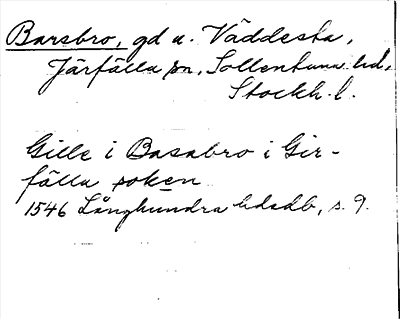 Barsbro, gd u. Väddesta,
Järfälla sn, Sollentuna hd,
Stockh. l.
Gille i Basabro i Gir-
fälla soken
1546 Långhundra hdsdb, s. 9.